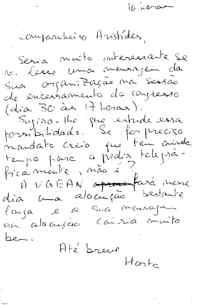 Companheiro Aristides,
Seria muito interessante se
v. lesse uma mensagem da
sua organização na sessão
de encerramento do congresso
(dia 30 às 17 horas).
Sugiro-lhe que estude essa
possibilidade. Se for preciso
mandato creio que tem ainda
tempo para o pedir telegrá-
ficamente, não é?
A UGEAN fará nesse
dia uma alocução bastante
longa e a sua mensagem
ou alocução cairia muito
bem.
Até breve